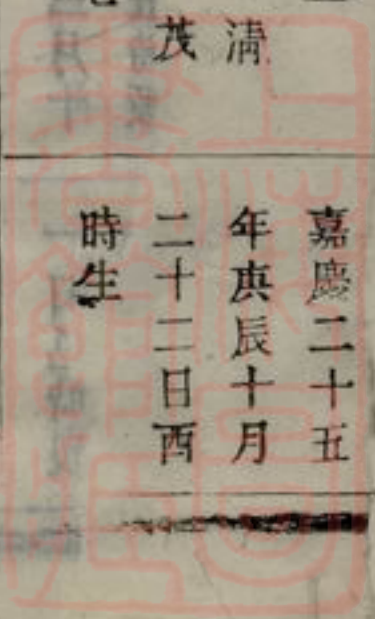 清
茂
嘉慶二十五
年庚辰十月
二十二日酉
時生